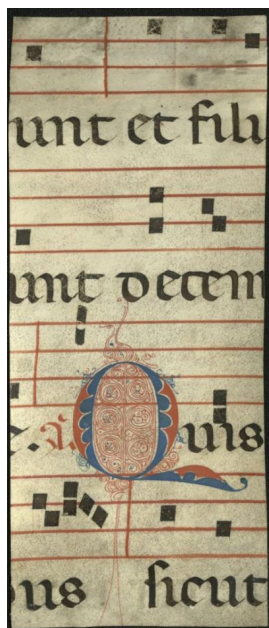 unt et filii
unt decem
e. ℣. Quis
bus sicut